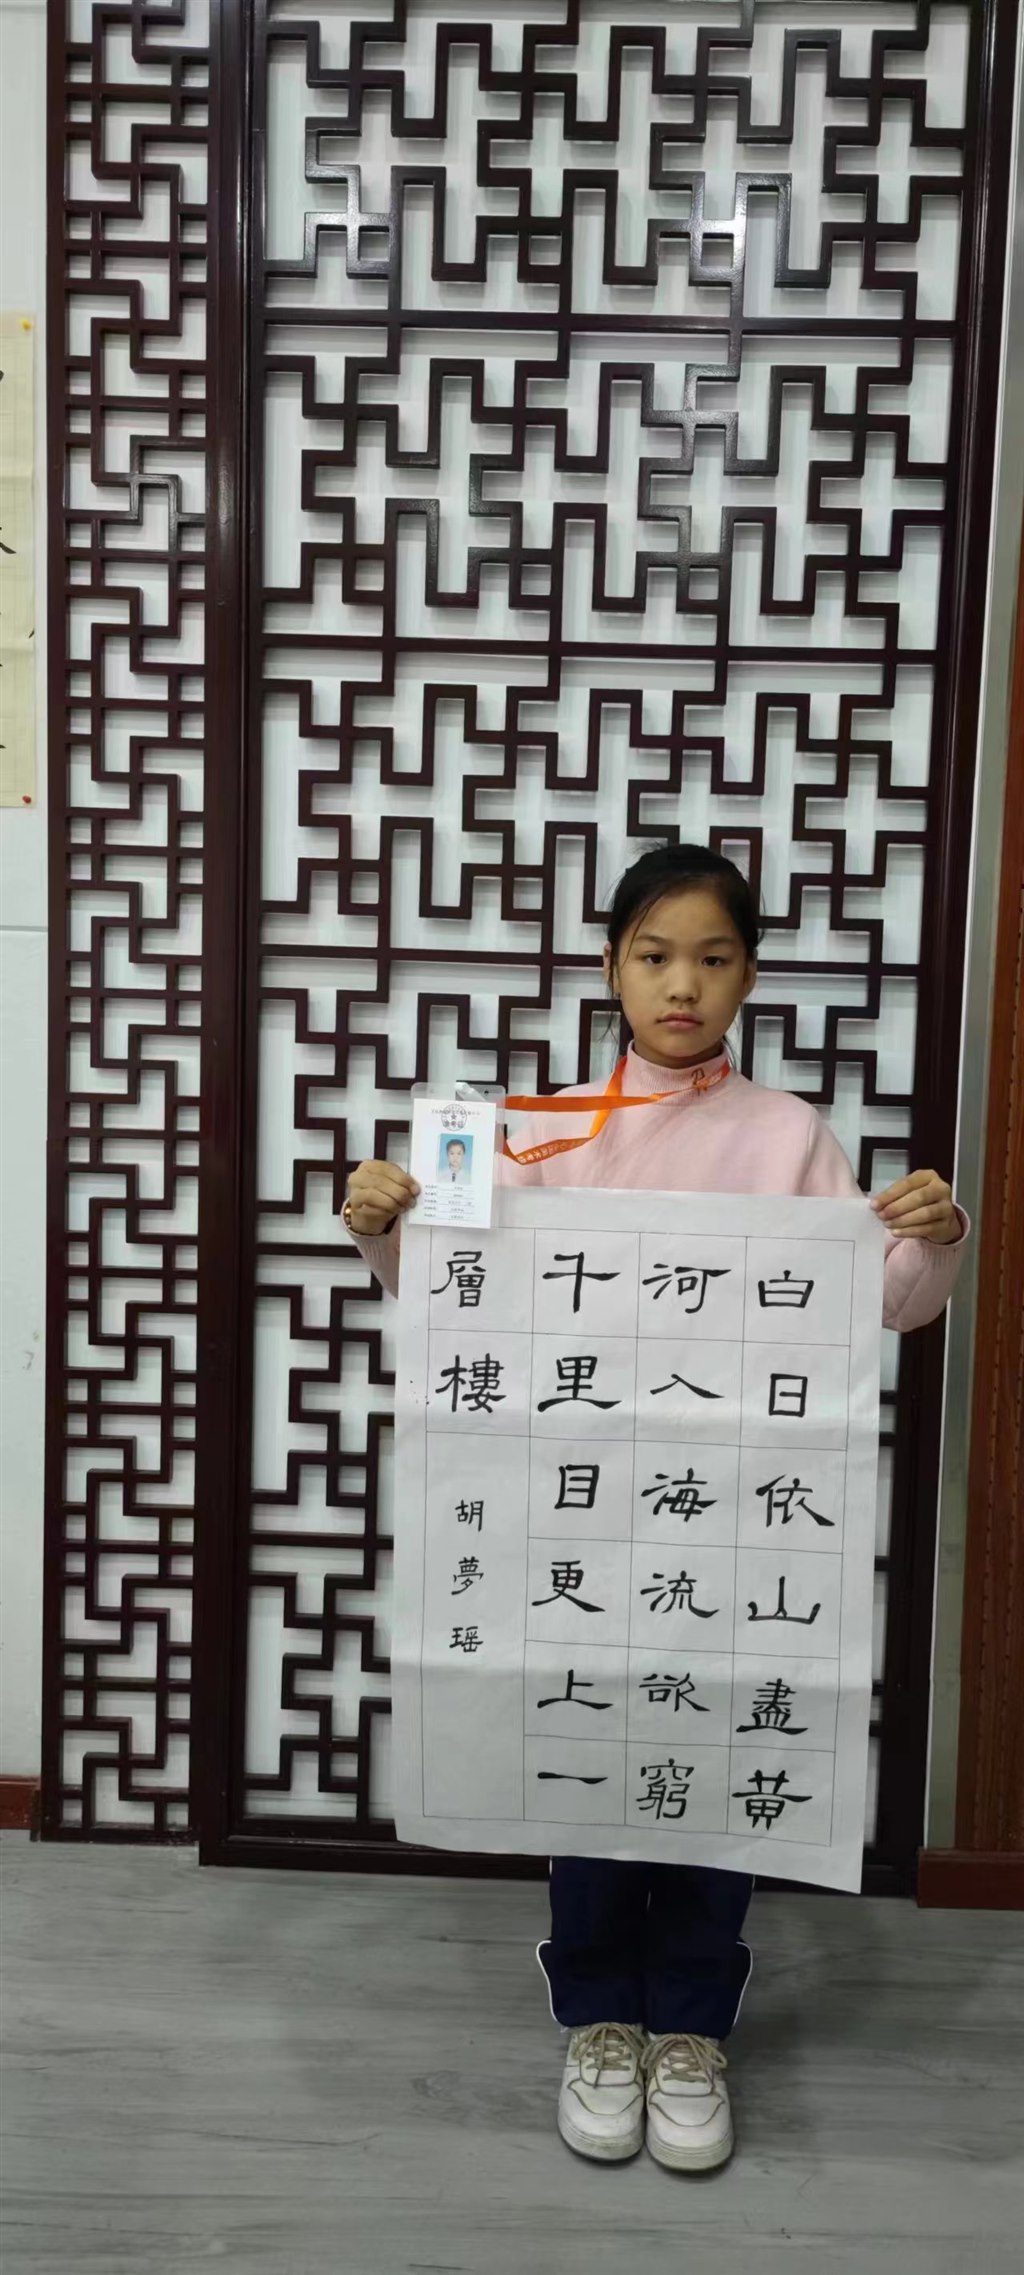 白日依山盡黃
河入海流欲窮
千里目更上一
層樓
胡夢瑶